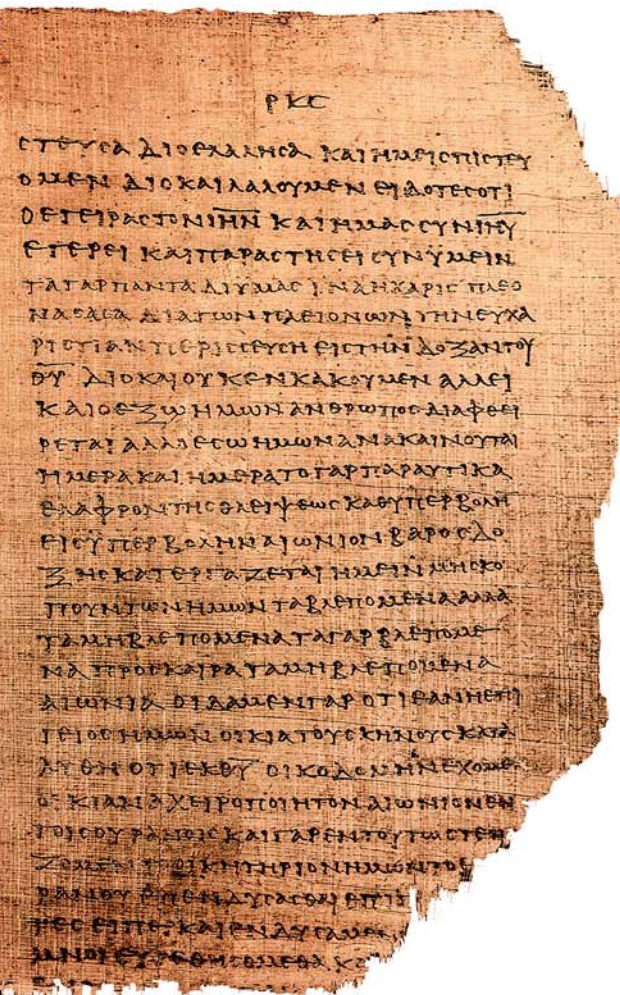 ΡΚϚ
ϹΤΕΥϹΑ ΔΙΟΕΛΑΛΗϹΑ ΚΑΙΗΜΕΙϹΠΙϹΤΕΥ
ΟΜΕΝ ΔΙΟΚΑΙΛΑΛΟΥΜΕΝ ΕΙΔΟΤΕϹΟΤΙ
ΟΕΓΕΙΡΑϹΤΟΝΙΗ̅Ν̅ ΚΑΙΗΜΑϹϹΥΝΙΗ̅Υ̅
ΕΓΕΡΕΙ ΚΑΙΠΑΡΑϹΤΗϹΕΙϹΥΝΫΜΕΙΝ
ΤΑΓΑΡΠΑΝΤΑΔΙΥΜΑϹΙΝΑΗΧΑΡΙϹ ΠΛΕΟ
ΝΑϹΑϹΑ ΔΙΑΤΩΝΠΛΕΙΟΝΩΝΤΗΝΕΥΧΑ
ΡΙϹΤΙΑΝΠΕΡΙϹϹΕΥϹΗ ΕΙϹΤΗΝΔΟΞΑΝΤΟΥ
Θ̅Υ̅ ΔΙΟΚΑΙΟΥΚΕΝΚΑΚΟΥΜΕΝ ΑΛΛΕΙ
ΚΑΙΟΕΞΩΗΜΩΝΑΝΘΡΩΠΟϹΔΙΑΦΘΕΙ
ΡΕΤΑΙ ΑΛΛΟΕϹΩΗΜΩΝΑΝΑΚΑΙΝΟΥΤΑΙ
ΗΜΕΡΑΚΑΙΗΜΕΡΑΤΟΓΑΡΠΑΡΑΥΤΙΚΑ
ΕΛΑΦΡΟΝΤΗϹΘΛΕΙΨΕΩϹΚΑΘΥΠΕΡΒΟΛΗ
ΕΙϹΫΠΕΡΒΟΛΗΝΑΙΩΝΙΟΝΒΑΡΟϹΔΟ
ΞΗϹΚΑΤΕΡΓΑΖΕΤΑΙΗΜΕΙΝΜΗϹΚΟ
ΠΟΥΝΤΩΝΗΜΩΝΤΑΒΛΕΠΟΜΕΝΑΑΛΛΑ
ΤΑΜΗΒΛΕΠΟΜΕΝΑΤΑΓΑΡΒΛΕΠΟΜΕ
ΝΑΠΡΟϹΚΑΙΡΑΤΑΜΗΒΛΕΠΟΜΕΝΑ
ΑΙΩΝΙΑ ΟΙΔΑΜΕΝΓΑΡΟΤΙΕΑΝΗΕΠΙ
ΓΕΙΟϹΗΜΩΝΟΙΚΙΑΤΟΥϹΚΗΝΟΥϹΚΑΤΑ
ΛΥΘΗΟΤΙΕΚΘ̅Υ̅ΟΙΚΟΔΟΜΗΝΕΧΟΜΕΝ
ΟΙΚΙΑΝΑΧΕΙΡΟΠΟΙΗΤΟΝΑΙΩΝΙΟΝΕΝ
ΤΟΙϹΟΥΡΑΝΟΙϹΚΑΙΓΑΡΕΝΤΟΥΤΩϹΤΕΝ
ΖΟΜΕΝΤΟΟΙΚΗΤΗΡΙΟΝΗΜΩΝΤΟΕ
ΡΑΝΟΥΕΠΕΝΔΥϹΑϹΘΑΙΕΠΙΠ
ΤΕϹΕΙΠΕΡΚΑΙΕΝΔΥϹΑΜΕΝ
ΜΝΟΙΕΥΡΕΘΗϹΟΜΕΘΑ Κ